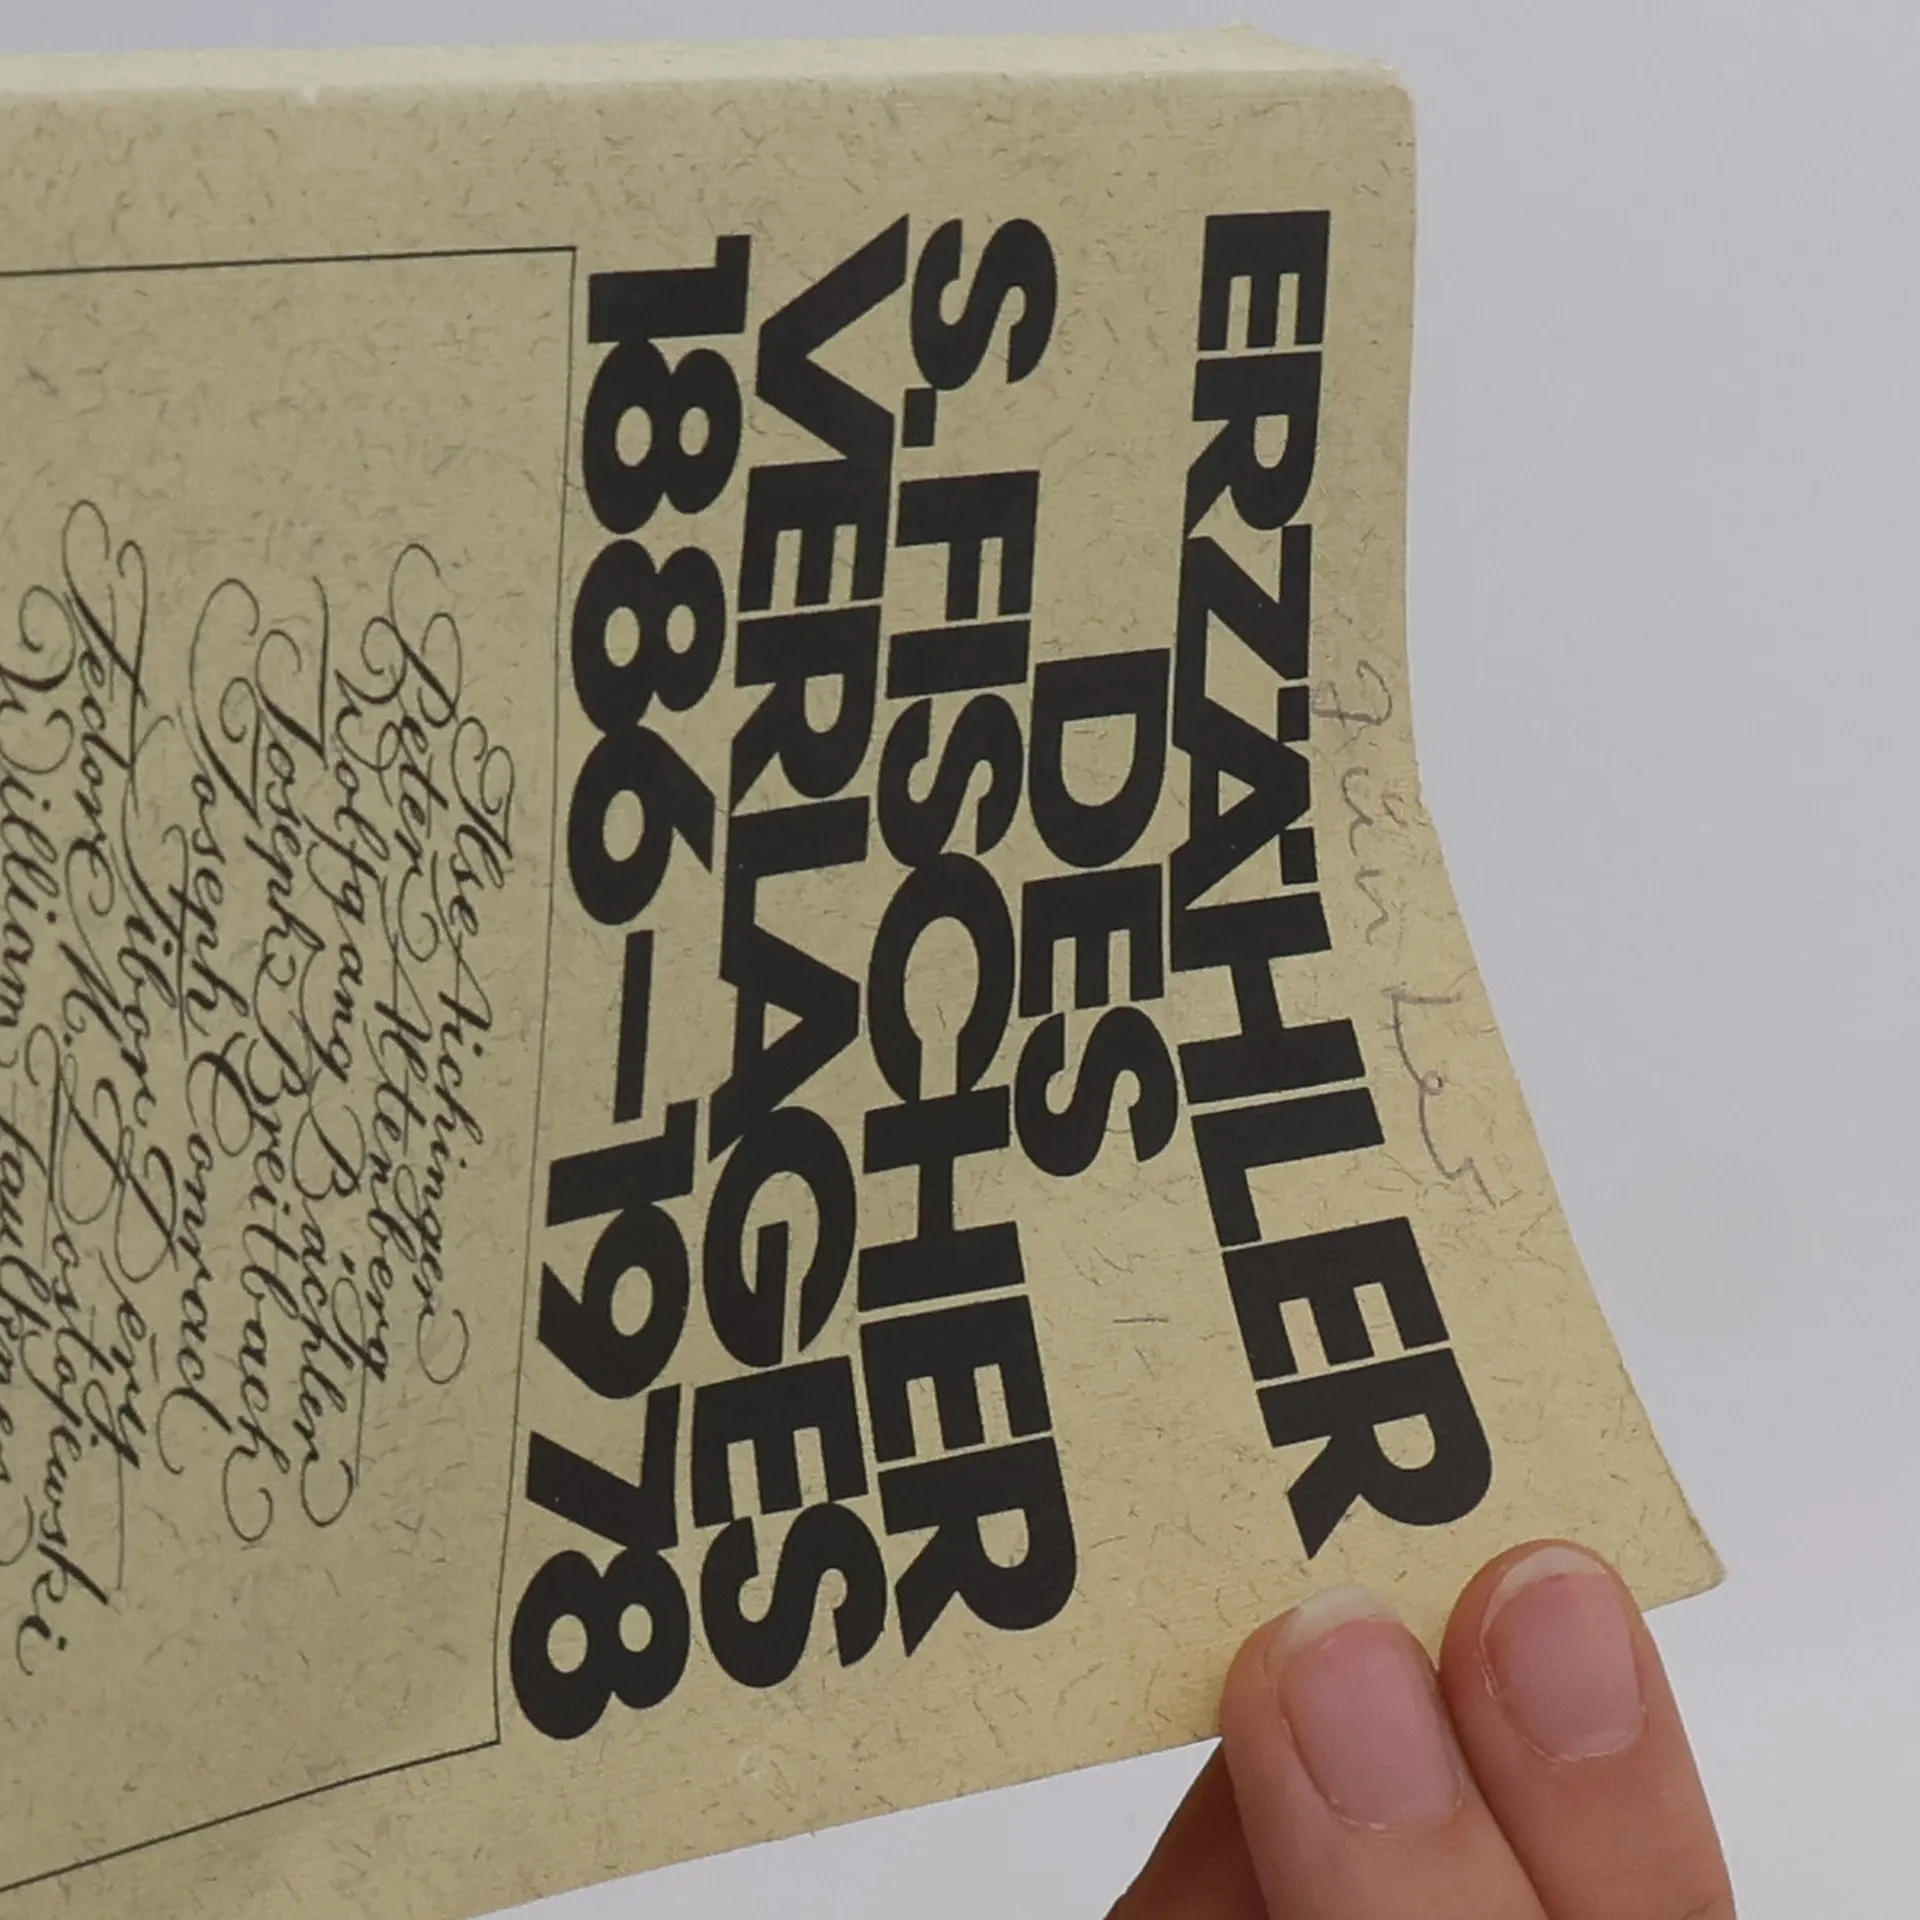 ERZÄHLER
DES
S. FISCHER
VERLAGES
1886–1978
Ilse Aichinger
Peter Altenberg
Wolfgang Bächler
Joseph Breitbach
Joseph Conrad
Tibor Déry
Fedor M. Dostojewski
William Faulkner